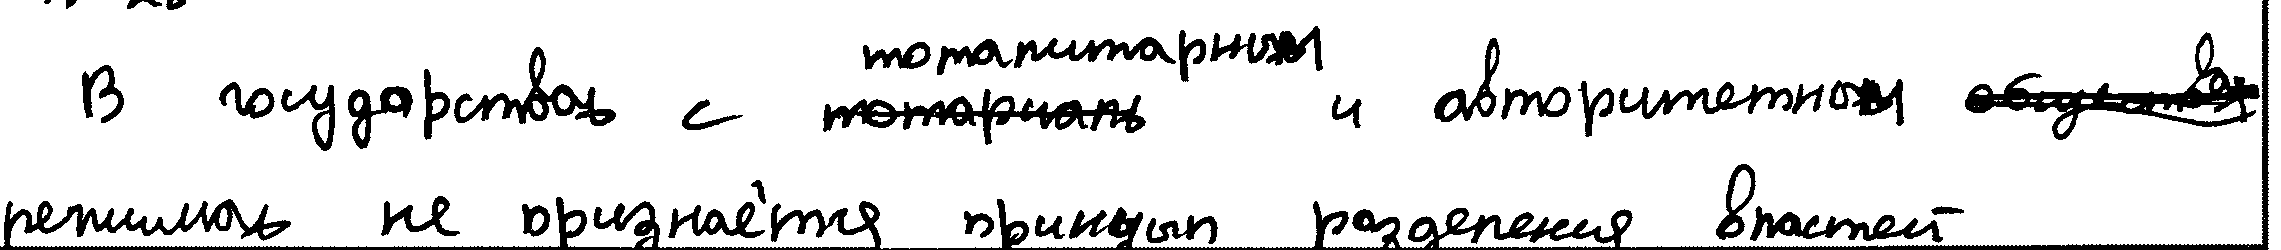 В государствах с тоталитарным и авторитетным
режимах не признаётся принцып разделения властей